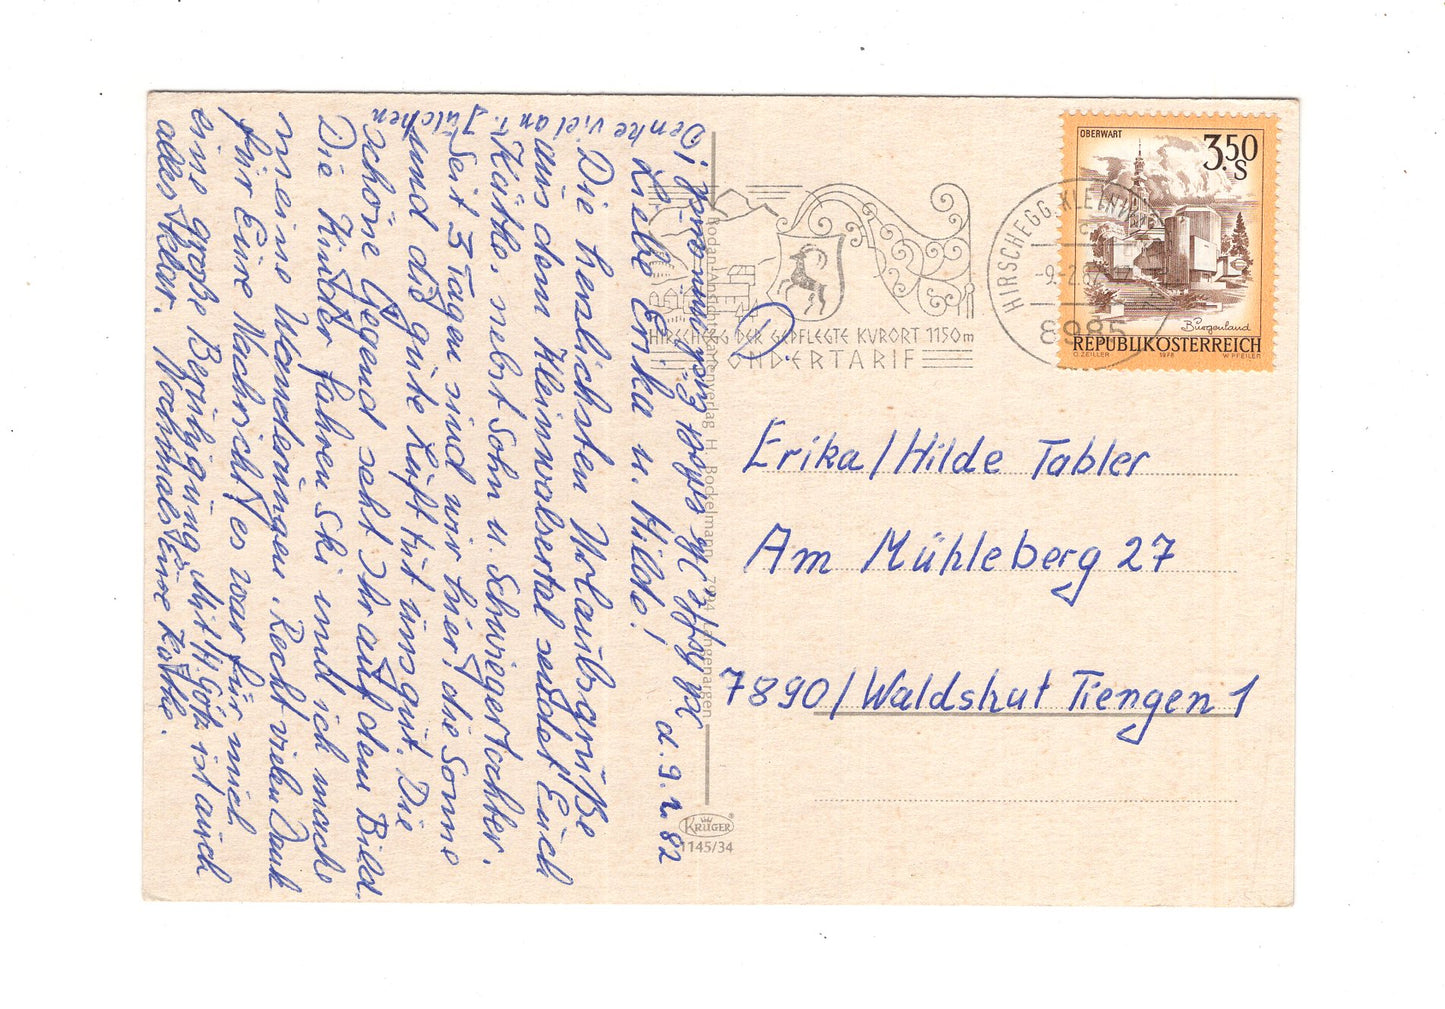 d. 9.2.82
Liebe Erika u. Hilde!
Die herzlichsten Urlaubsgrüße
aus dem Kleinwalsertal sendet Euch
Käthe, nebst Sohn u. Schwiegertochter.
Seit 3 Tagen sind wir hier! die Sonne
und die gute Luft tut uns gut. Die
schöne Gegend seht Ihr auf dem Bild.
Die Kinder fahren Ski und ich mache
meine Wanderungen. Recht vielen Dank
für Eure Nachricht, es war für mich
eine große Beruhigung. Mit H. Götz ist auch
alles klar. Nochmals Eure Käthe.
Denke viel an t. Julchen
OBERWART
3.50
S
Burgenland
REPUBLIK ÖSTERREICH
O. ZEILLER 1978 W. PFEILER
HIRSCHEGG, KLEINW
-9.-2.82
8985
HIRSCHEGG DER GEPFLEGTE KURORT 1150m
SONDERTARIF
Erika/Hilde Tabler
Am Mühleberg 27
7890/Waldshut Tiengen 1
Bodan-Ansichtskartenverlag H. Bockelmann, 7994 Langenargen
KRÜGER
1145/34